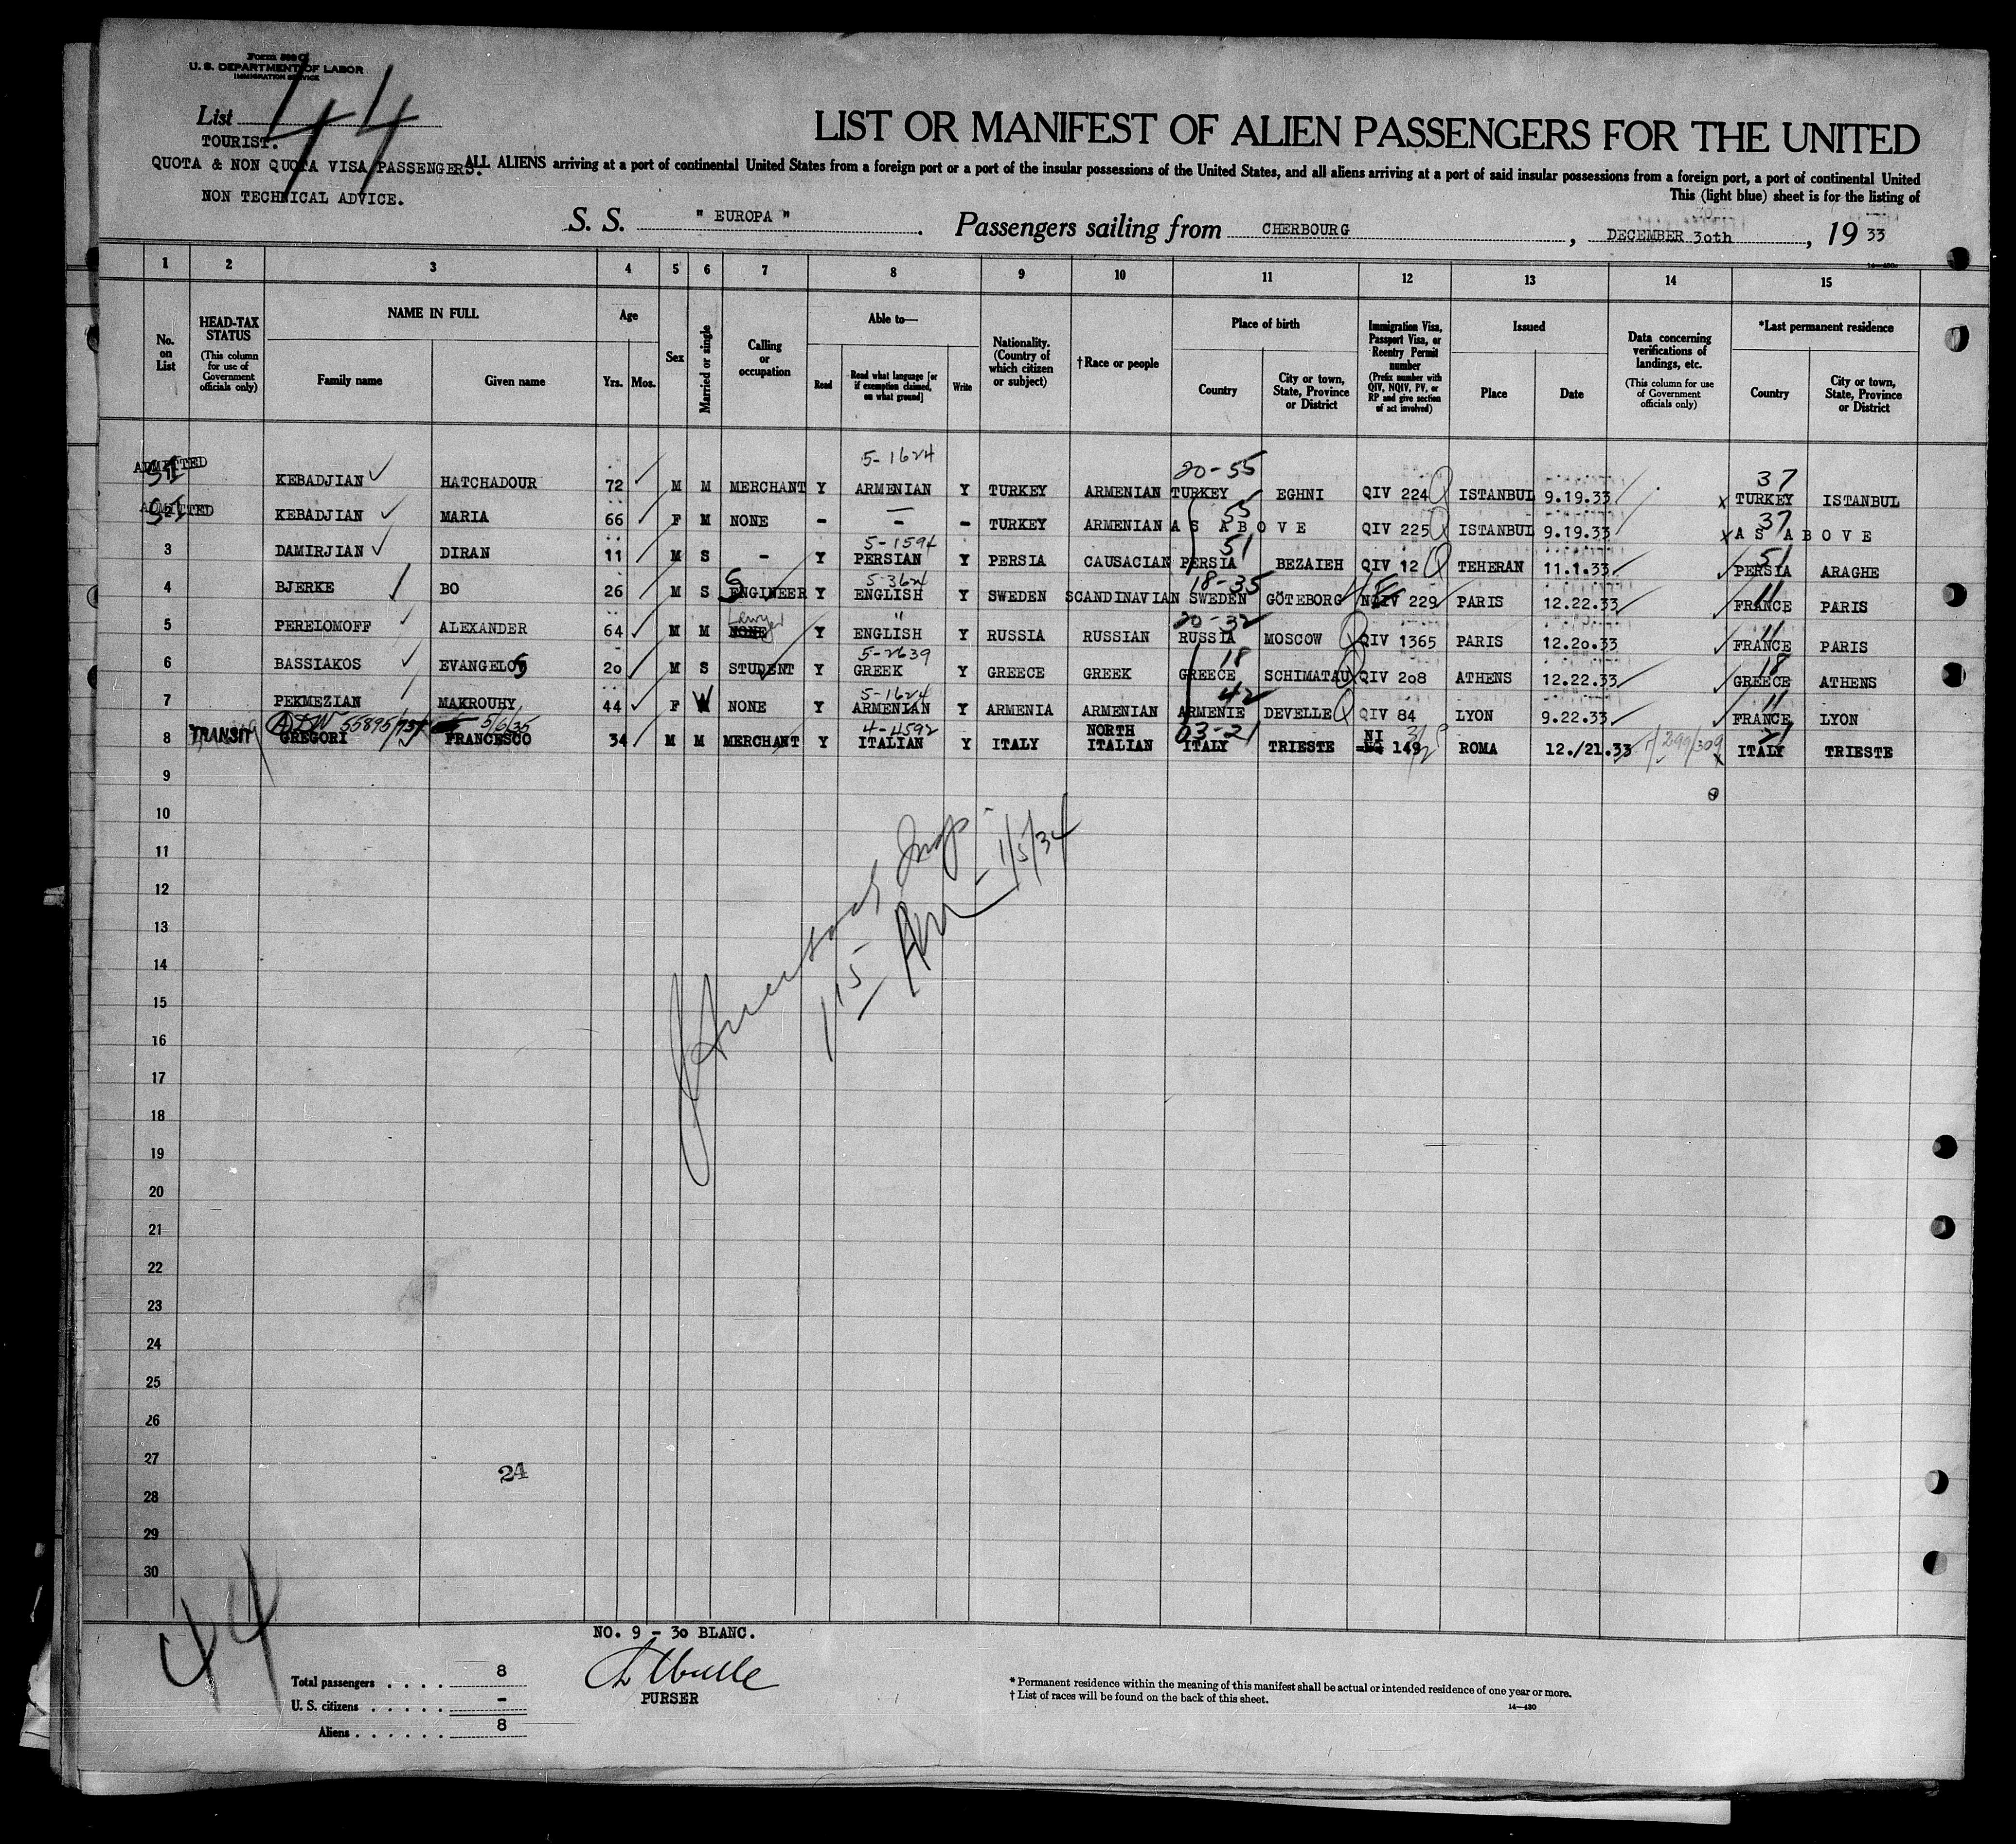 Form 500 C
U. S. DEPARTMENT OF LABOR
IMMIGRATION SERVICE
List 44
TOURIST.
QUOTA & NON QUOTA VISA PASSENGERS.
NON TECHNICAL ADVICE.
LIST OR MANIFEST OF ALIEN PASSENGERS FOR THE UNITED
ALL ALIENS arriving at a port of continental United States from a foreign port or a port of the insular possessions of the United States, and all aliens arriving at a port of said insular possessions from a foreign port, a port of continental United
This (light blue) sheet is for the listing of
S. S. " EUROPA " . Passengers sailing from CHERBOURG , DECEMBER 30th , 19 33
1 2 3 4 5 6 7 8 9 10 11 12 13 14 15
No. on List
HEAD-TAX STATUS (This column for use of Government officials only)
NAME IN FULL
Family name Given name
Age
Yrs. Mos.
Sex
Married or single
Calling or occupation
Able to—
Read Read what language [or if exemption claimed, on what ground] Write
Nationality. (Country of which citizen or subject)
†Race or people
Place of birth
Country City or town, State, Province or District
Immigration Visa, Passport Visa, or Reentry Permit number (Prefix number with QIV, NQIV, PV, or RP and give section of act involved)
Issued
Place Date
Data concerning verifications of landings, etc. (This column for use of Government officials only)
*Last permanent residence
Country City or town, State, Province or District
5-1624 20-55 37
ADMITTED SI KEBADJIAN HATCHADOUR 72 M M MERCHANT Y ARMENIAN Y TURKEY ARMENIAN TURKEY EGHNI QIV 224 ISTANBUL 9.19.33 x TURKEY ISTANBUL
55 37
ADMITTED SI KEBADJIAN MARIA 66 F M NONE - - - TURKEY ARMENIAN AS ABOVE QIV 225 ISTANBUL 9.19.33 x AS ABOVE
5-1594 51 51
3 DAMIRJIAN DIRAN 11 M S - Y PERSIAN Y PERSIA CAUSACIAN PERSIA BEZAIEH QIV 12 TEHERAN 11.1.33 PERSIA ARAGHE
5-3624 18-35 11
4 BJERKE BO 26 M S ENGINEER Y ENGLISH Y SWEDEN SCANDINAVIAN SWEDEN GÖTEBORG NQIV 229 PARIS 12.22.33 FRANCE PARIS
Lawyer " 20-32 11
5 PERELOMOFF ALEXANDER 64 M M NONE Y ENGLISH Y RUSSIA RUSSIAN RUSSIA MOSCOW QIV 1365 PARIS 12.20.33 FRANCE PARIS
5-2639 18 18
6 BASSIAKOS EVANGELOS 20 M S STUDENT Y GREEK Y GREECE GREEK GREECE SCHIMATAU QIV 208 ATHENS 12.22.33 GREECE ATHENS
5-1624 42 11
7 PEKMEZIAN MAKROUHY 44 F W NONE Y ARMENIAN Y ARMENIA ARMENIAN ARMENIE DEVELLE QIV 84 LYON 9.22.33 FRANCE LYON
5/6/35 4-4592 NORTH 03-21 NI 21
TRANSIT 8 GREGORI FRANCESCO 34 M M MERCHANT Y ITALIAN Y ITALY ITALIAN ITALY TRIESTE 149 ROMA 12./21.33 299/309 x ITALY TRIESTE
9
10
11
12
13
14
15
16
17
18
19
20
21
22
23
24
25
26
27
28
29
30
Insp
1/5/34
1/5
24
44
NO. 9 - 30 BLANC.
PURSER
Total passengers . . . . 8
U. S. citizens . . . . . -
Aliens . . . . . . 8
* Permanent residence within the meaning of this manifest shall be actual or intended residence of one year or more.
† List of races will be found on the back of this sheet.
14—430